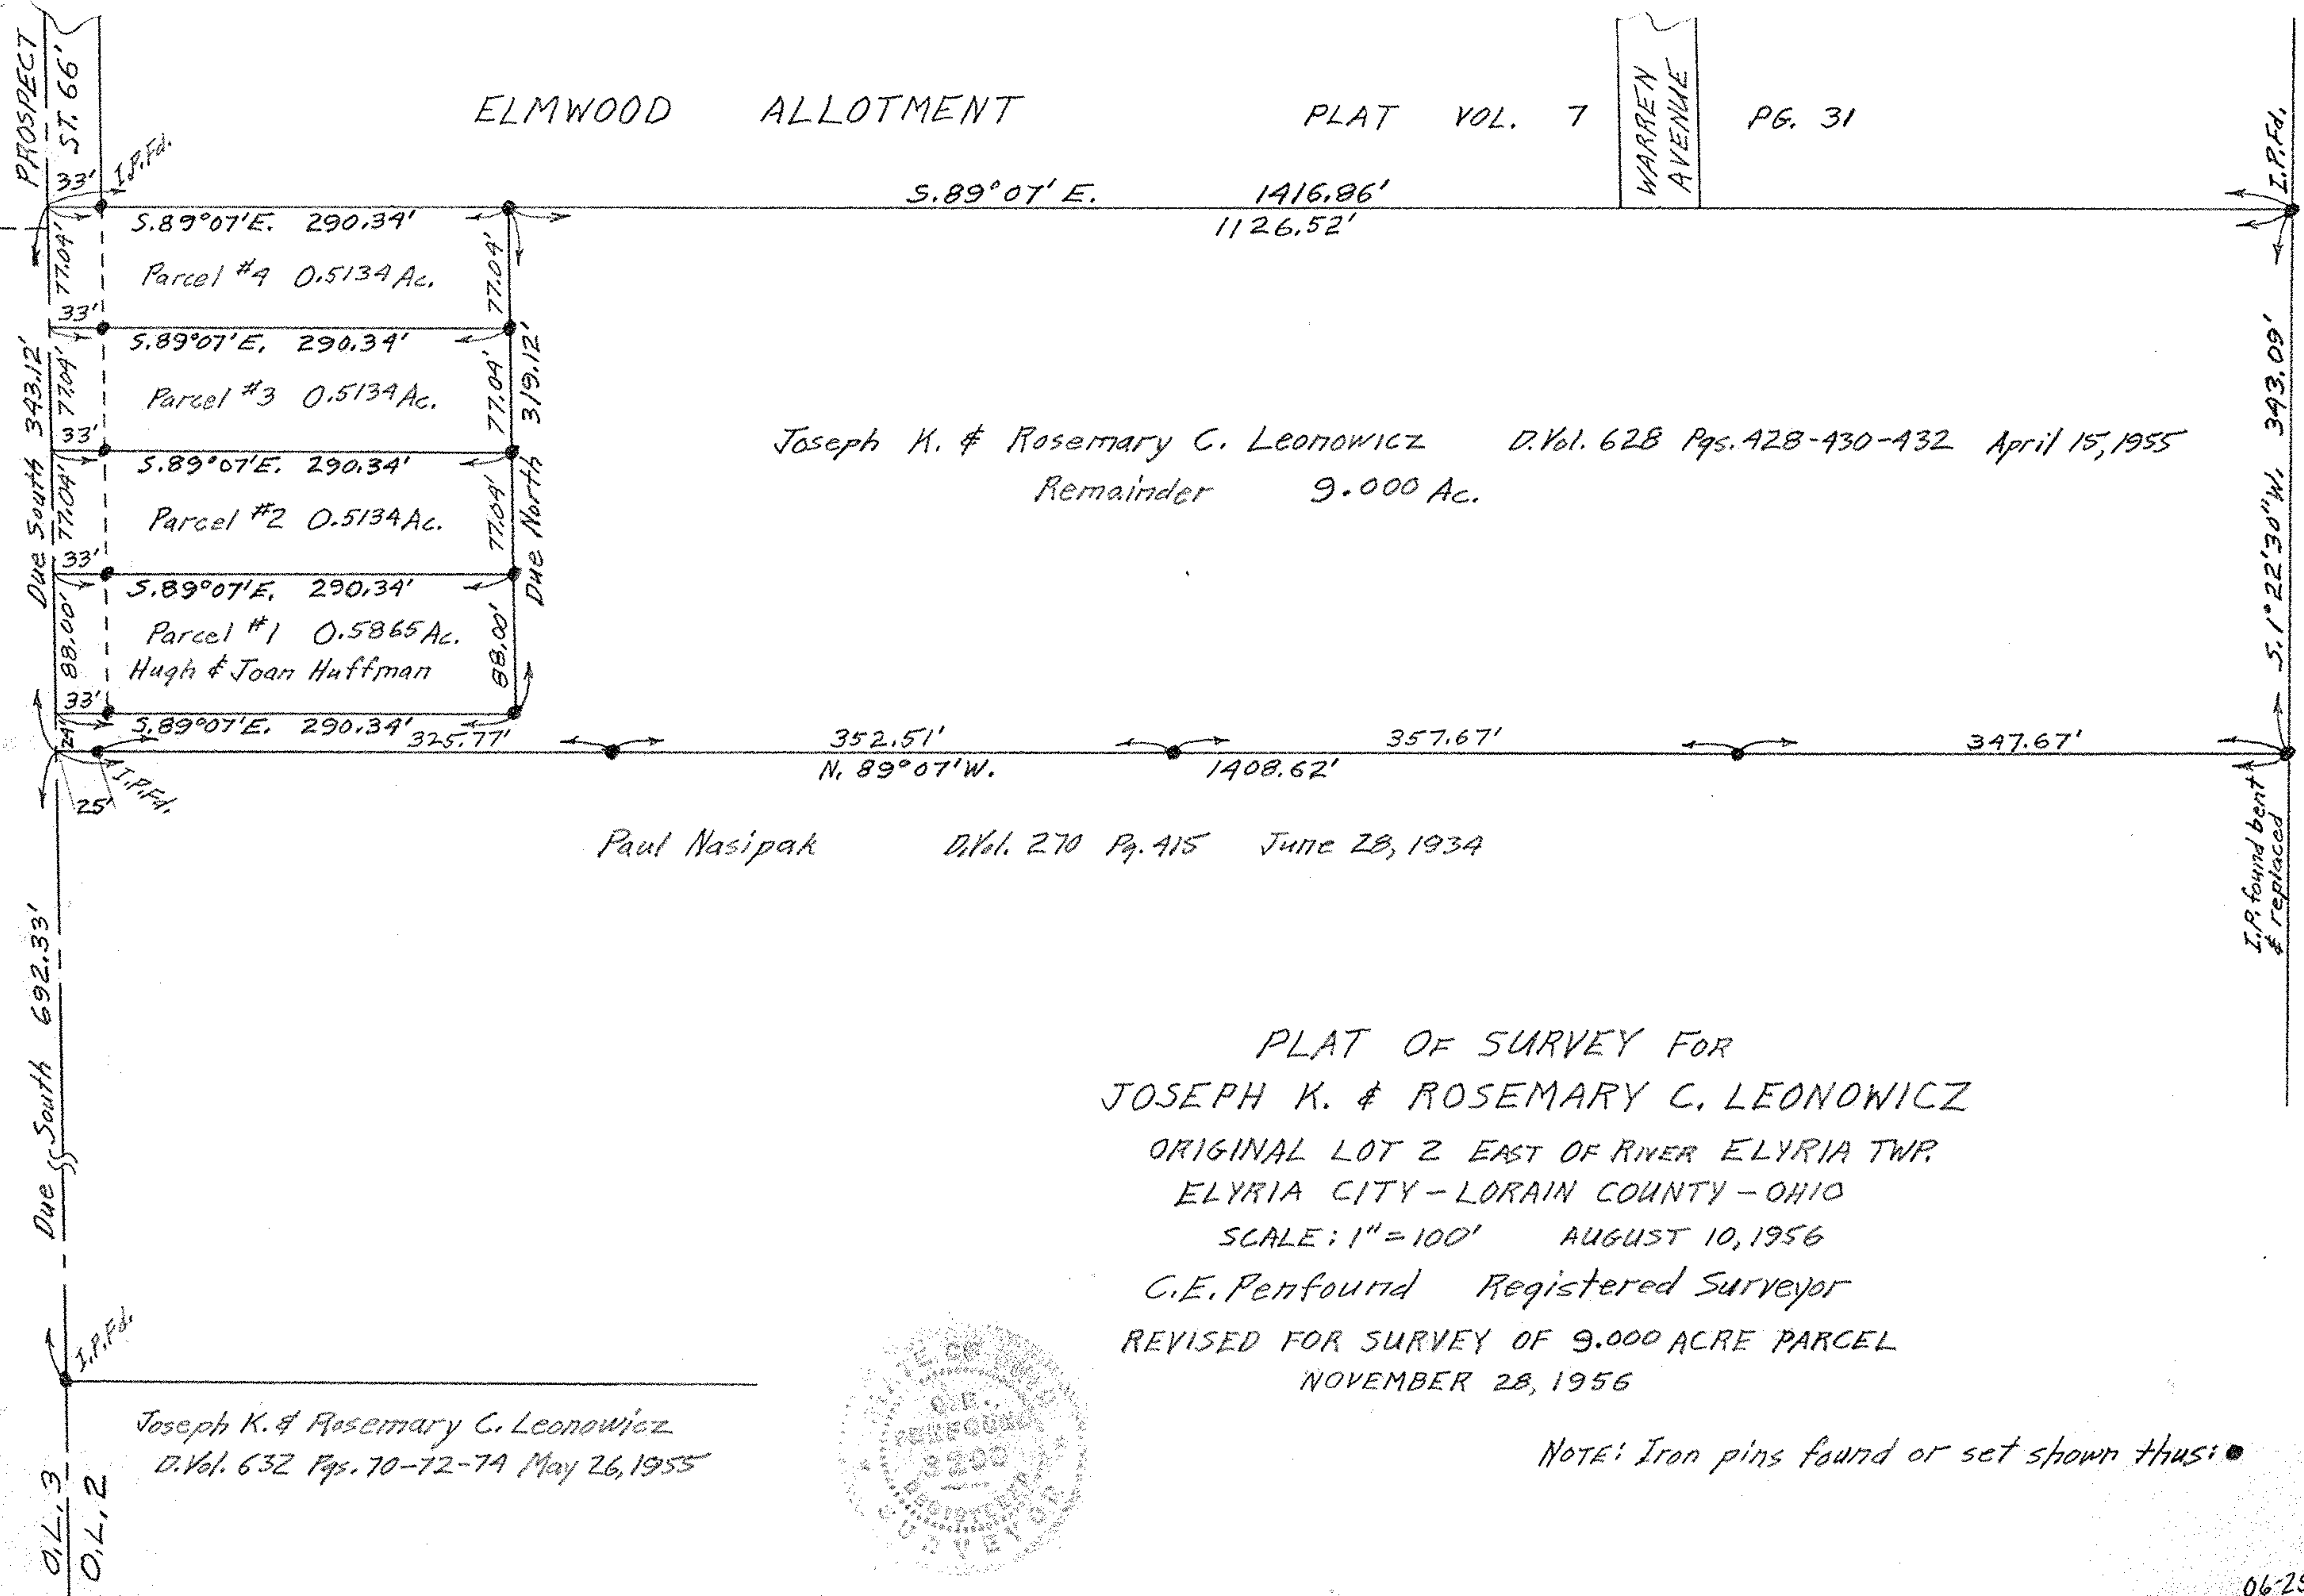 PROSPECT
ST. 66'
33'
I.P.Fd.
ELMWOOD ALLOTMENT PLAT VOL. 7
WARREN
AVENUE
PG. 31
I.P.Fd.
S.89°07'E. 1416.86'
1126.52'
S.89°07'E. 290.34'
77.04'
Parcel #4 0.5134 Ac.
77.04'
33'
S.89°07'E. 290.34'
77.04'
Parcel #3 0.5134 Ac.
77.04'
33'
S.89°07'E. 290.34'
77.04'
Parcel #2 0.5134 Ac.
77.04'
33'
S.89°07'E. 290.34'
88.00'
Parcel #1 0.5865 Ac.
Hugh & Joan Huffman
88.00'
33'
S.89°07'E. 290.34'
Due South 343.12'
Due North 319.12'
Joseph K. & Rosemary C. Leonowicz D.Vol. 628 Pgs. 428-430-432 April 15, 1955
Remainder 9.000 Ac.
S. 1°22'30"W. 343.09'
24'
325.77'
352.51'
357.67'
347.67'
N. 89°07'W. 1408.62'
25'
I.P.Fd.
I.P. found bent
& replaced
Paul Nasipak D.Vol. 270 Pg. 415 June 28, 1934
Due South 692.33'
PLAT OF SURVEY FOR
JOSEPH K. & ROSEMARY C. LEONOWICZ
ORIGINAL LOT 2 EAST OF RIVER ELYRIA TWP.
ELYRIA CITY - LORAIN COUNTY - OHIO
SCALE: 1" = 100' AUGUST 10, 1956
C.E. Penfound Registered Surveyor
REVISED FOR SURVEY OF 9.000 ACRE PARCEL
NOVEMBER 28, 1956
I.P.Fd.
Joseph K. & Rosemary C. Leonowicz
D.Vol. 632 Pgs. 70-72-74 May 26, 1955
STATE OF
C.E.
PENFOUND
REGISTERED
SURVEYOR
NOTE: Iron pins found or set shown thus:
O.L. 3
O.L. 2